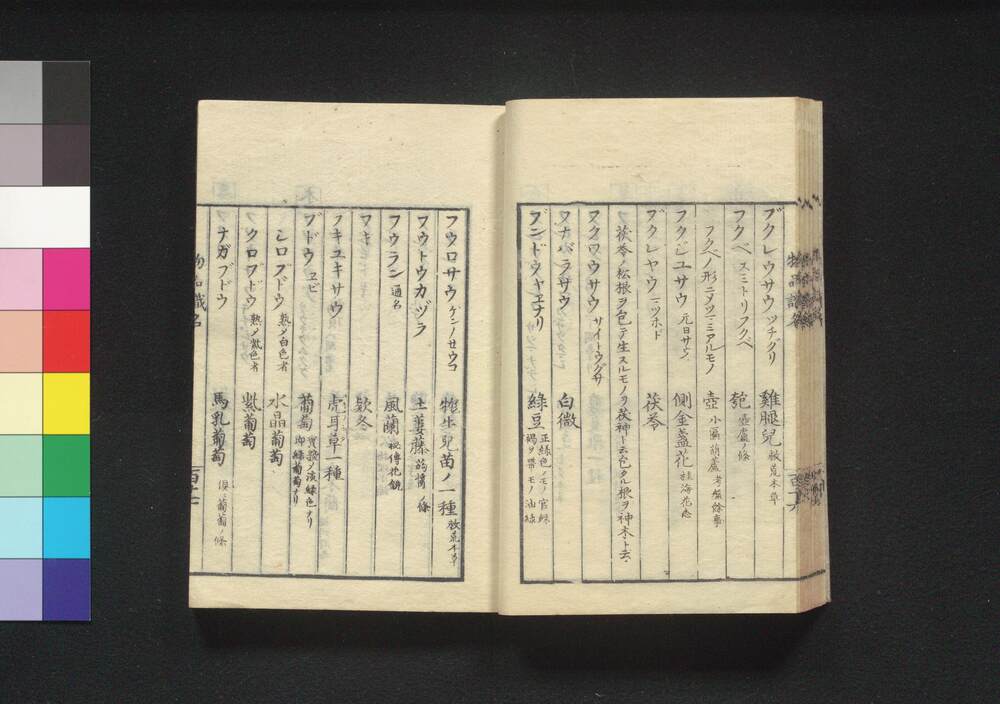 ブクレウサウ ツチグリ 雞腿兒 救荒本草
フクベ スミトリフクベ 匏 壺盧ノ條
フクベノ形ニ アルモノ 壺 小匾葫蘆 考槃餘事
フクジユサウ 元日サウ 側金盞花 桂海花志
ブクレヤウ マツホド 茯苓
茯苓ノ松根ヲ包テ生スルモノヲ茯神ト云包タル根ヲ神木ト云
フクロウサウ サイトウグサ
フナバラサウ 白薇
ブンドウ ヤヱナリ 綠豆 正綠色ノモノ官綠 褐ヲ帶モノ油綠
フウロサウ ゲンノセウコ 牻牛兒苗ノ一種 救荒本草
フウトウカヅラ 土萋藤 ノ條
フウラン 通名 風蘭 秘傳花鏡
フキ 款冬
フキユキサウ 虎耳草一種
ブドウ ヱビ 葡萄 實熟ノ淡綠色ナリ 即綠葡萄ナリ
シロブドウ 熟メ白色者 水晶葡萄
クロブドウ 熟メ紫色者 紫葡萄
ナガブドウ 馬乳葡萄 葡萄ノ條
物品識名